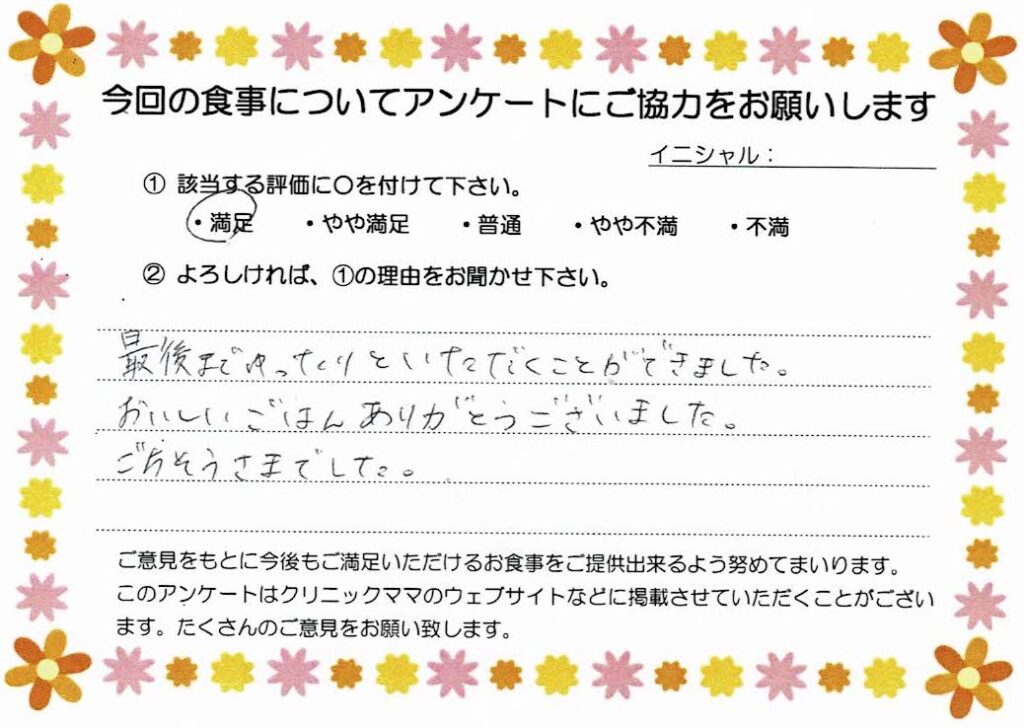 今回の食事についてアンケートにご協力をお願いします
イニシャル：
① 該当する評価に〇を付けて下さい。
・満足 ・やや満足 ・普通 ・やや不満 ・不満
② よろしければ、①の理由をお聞かせ下さい。
最後までゆったりといただくことができました。
おいしいごはんありがとうございました。
ごちそうさまでした。
ご意見をもとに今後もご満足いただけるお食事をご提供出来るよう努めてまいります。
このアンケートはクリニックママのウェブサイトなどに掲載させていただくことがござい
ます。たくさんのご意見をお願い致します。